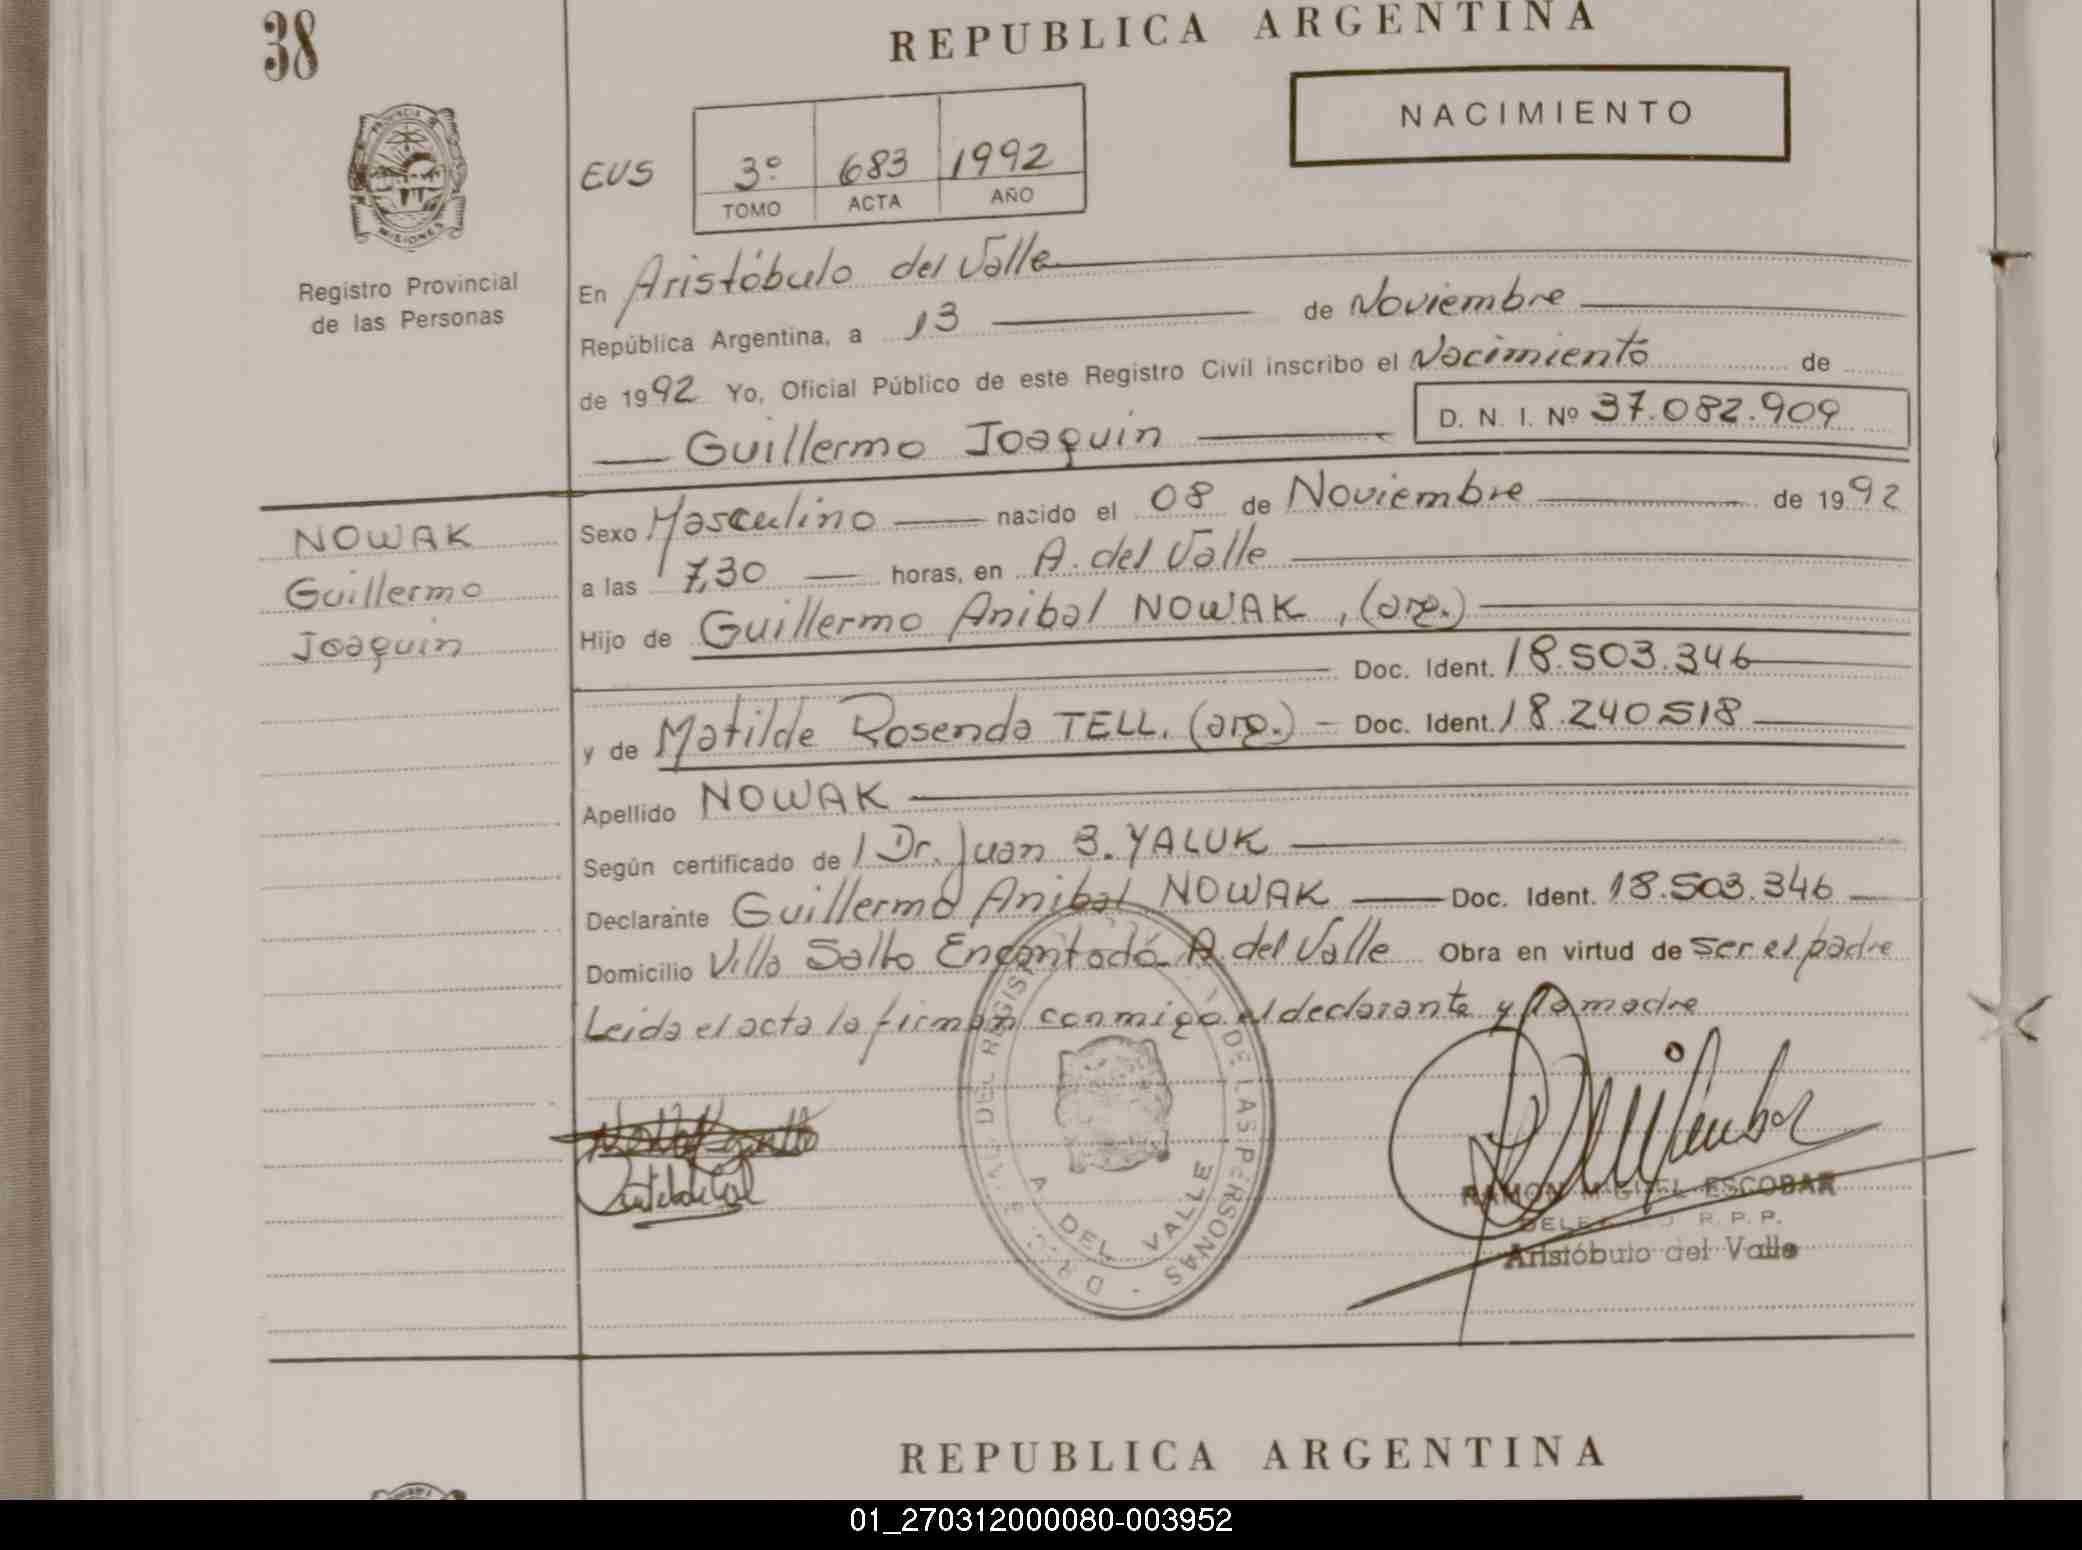 38
REPUBLICA ARGENTINA
NACIMIENTO
PROVINCIA DE
MISIONES
Registro Provincial
de las Personas
EUS 3º 683 1992
TOMO ACTA AÑO
En Aristóbulo del Valle
República Argentina, a 13 de Noviembre
de 1992 Yo, Oficial Público de este Registro Civil inscribo el Nacimiento de
Guillermo Joaquin D. N. I. Nº 37.082.909
NOWAK
Guillermo
Joaquin
Sexo Masculino nacido el 08 de Noviembre de 1992
a las 7,30 horas, en A. del Valle
Hijo de Guillermo Anibal NOWAK, (arg.)
Doc. Ident. 18.503.346
y de Matilde Rosenda TELL. (arg.) - Doc. Ident. 18.240518
Apellido NOWAK
Según certificado del Dr. Juan B. YALUK
Declarante Guillermo Anibal NOWAK Doc. Ident. 18.503.346
Domicilio Villa Salto Encantado A. del Valle Obra en virtud de ser el padre
Leida el acta la firman conmigo el declarante y la madre
DEL REGIS DE LAS PERSONAS
A DEL VALLE
RAMON MIGUEL ESCOBAR
R. P. P.
Aristóbulo del Valle
REPUBLICA ARGENTINA
01_270312000080-003952